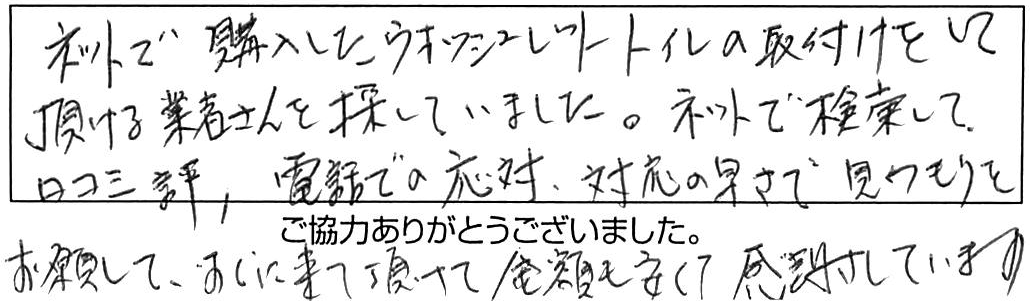 ネットで購入したウオッシュレットトイレの取付けをして
頂ける業者さんを探していました。ネットで検索して
口コミ評, 電話での応対、対応の早さで見つもりを
ご協力ありがとうございました。
お願して、すぐに来て頂けて金額も安くて感謝しています